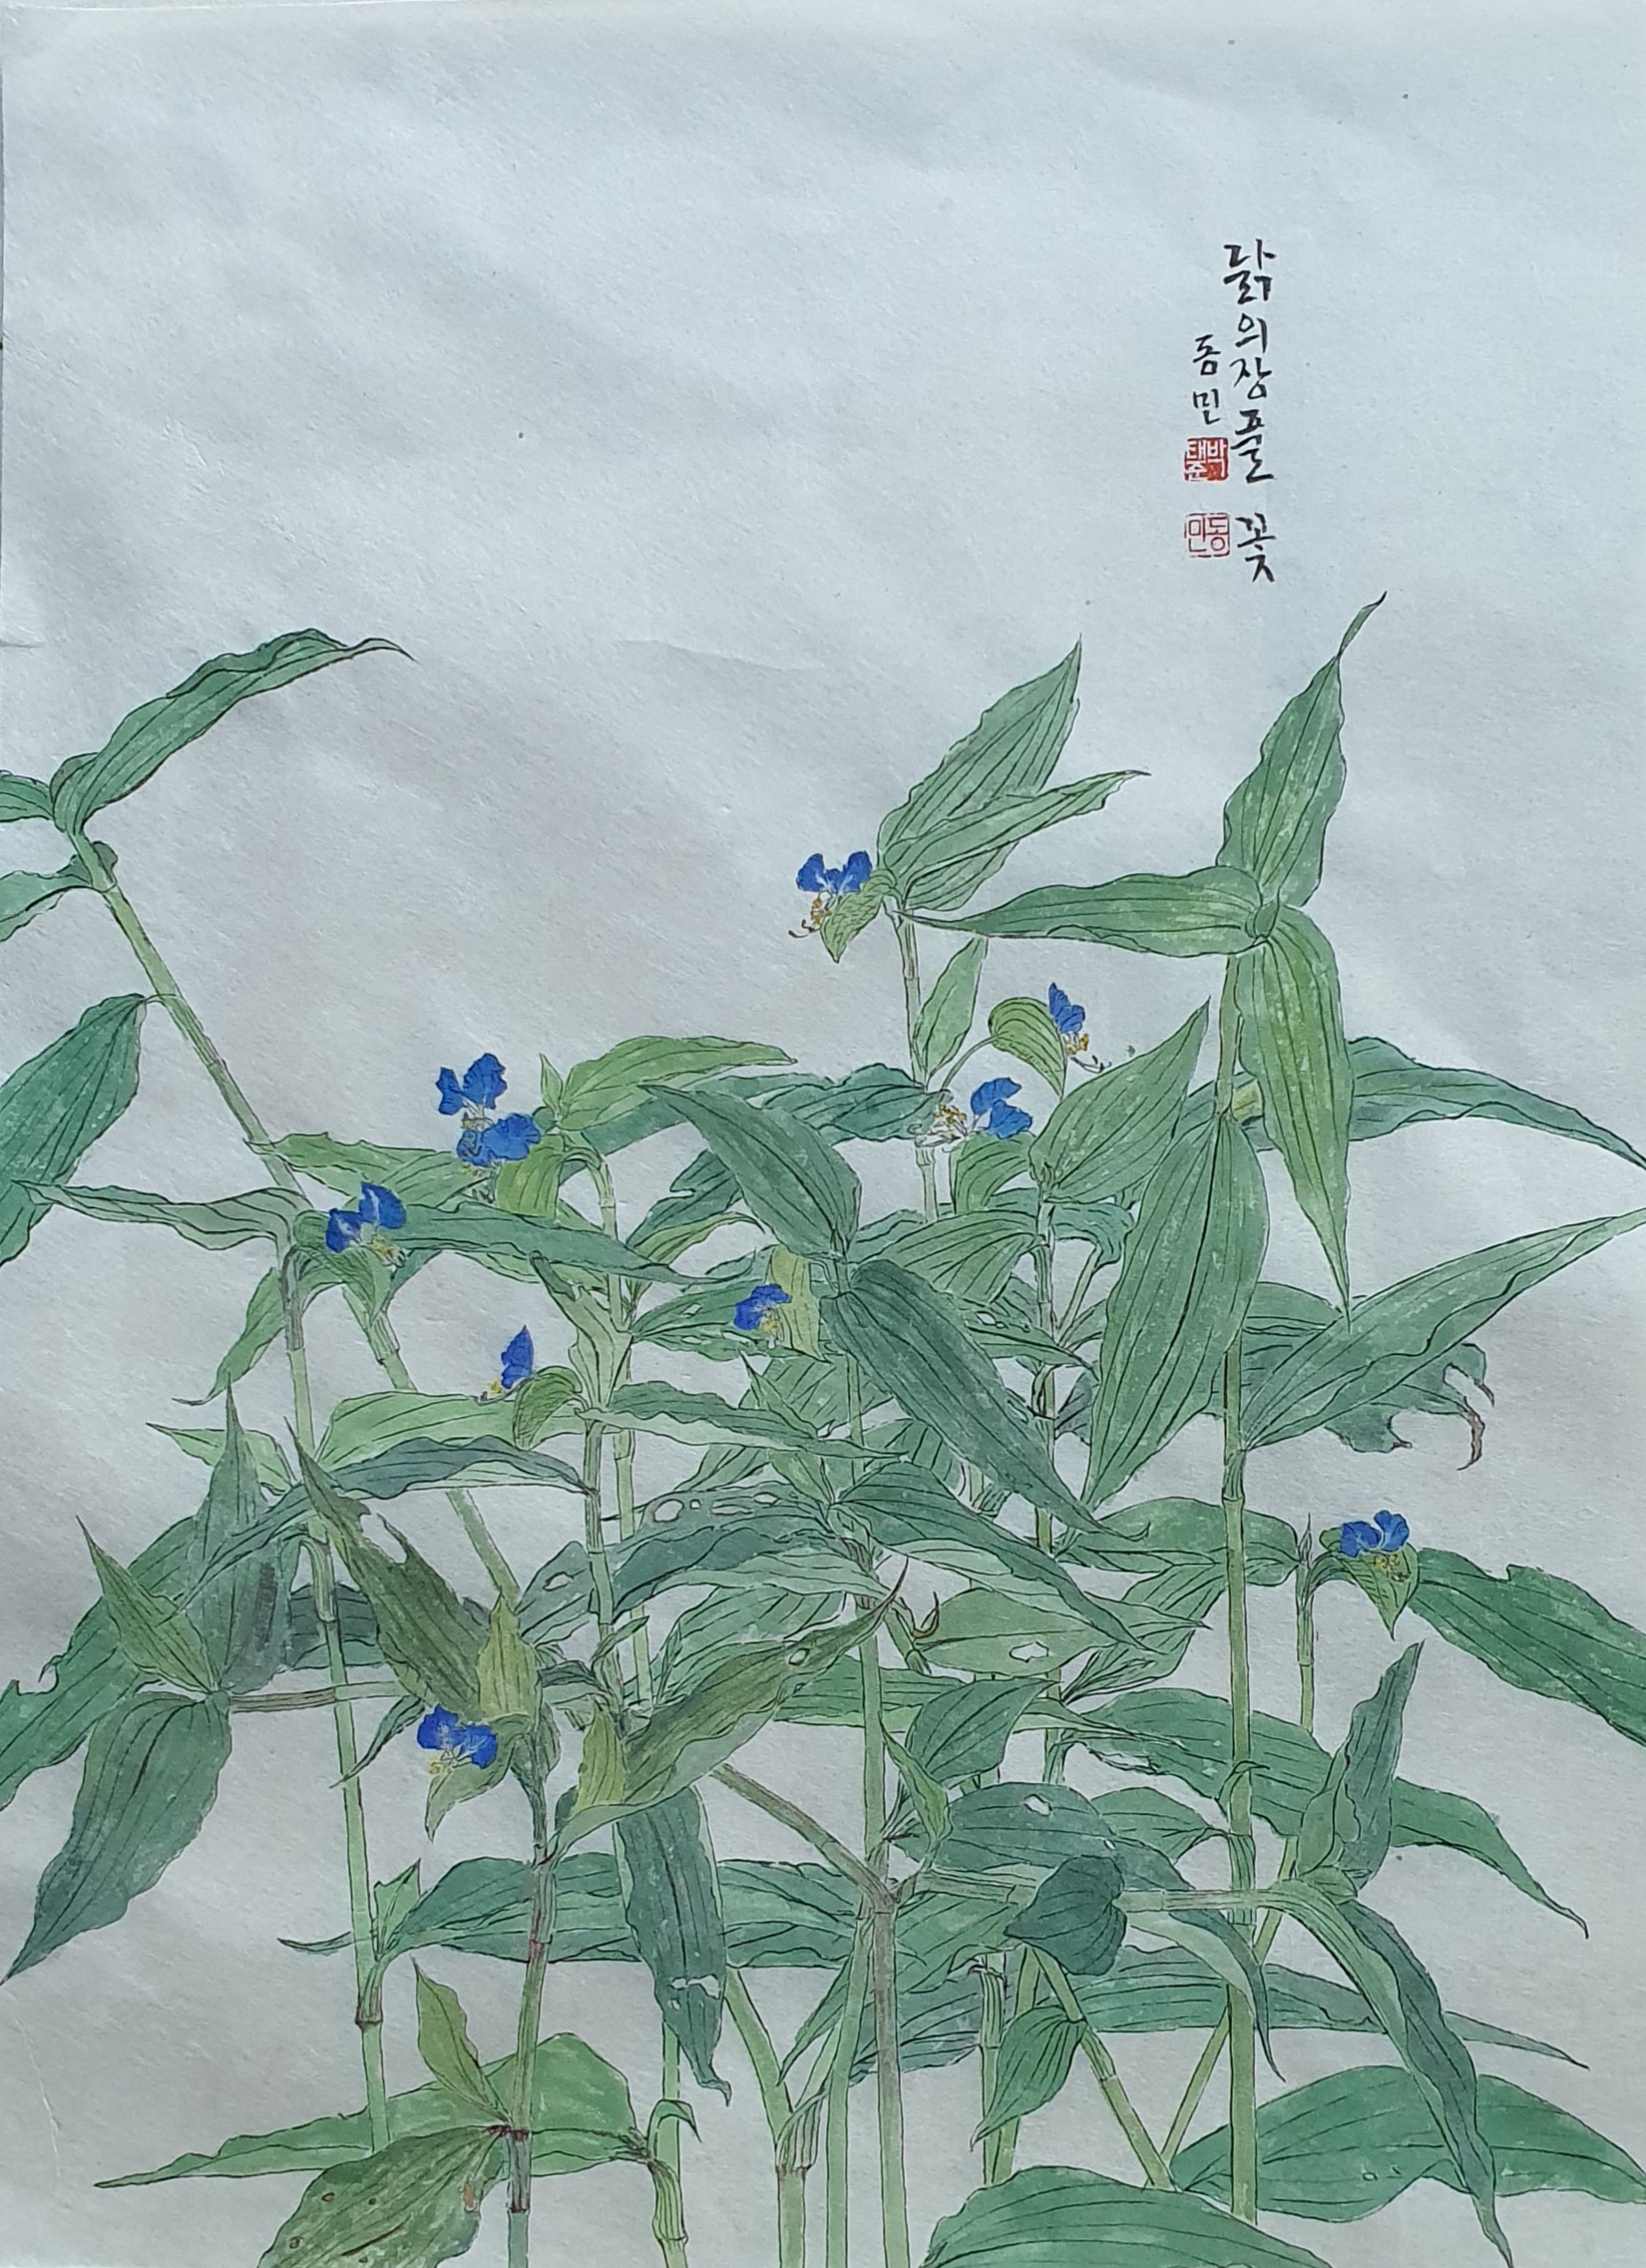 닭의장풀 꽃
동민
박태준
동민